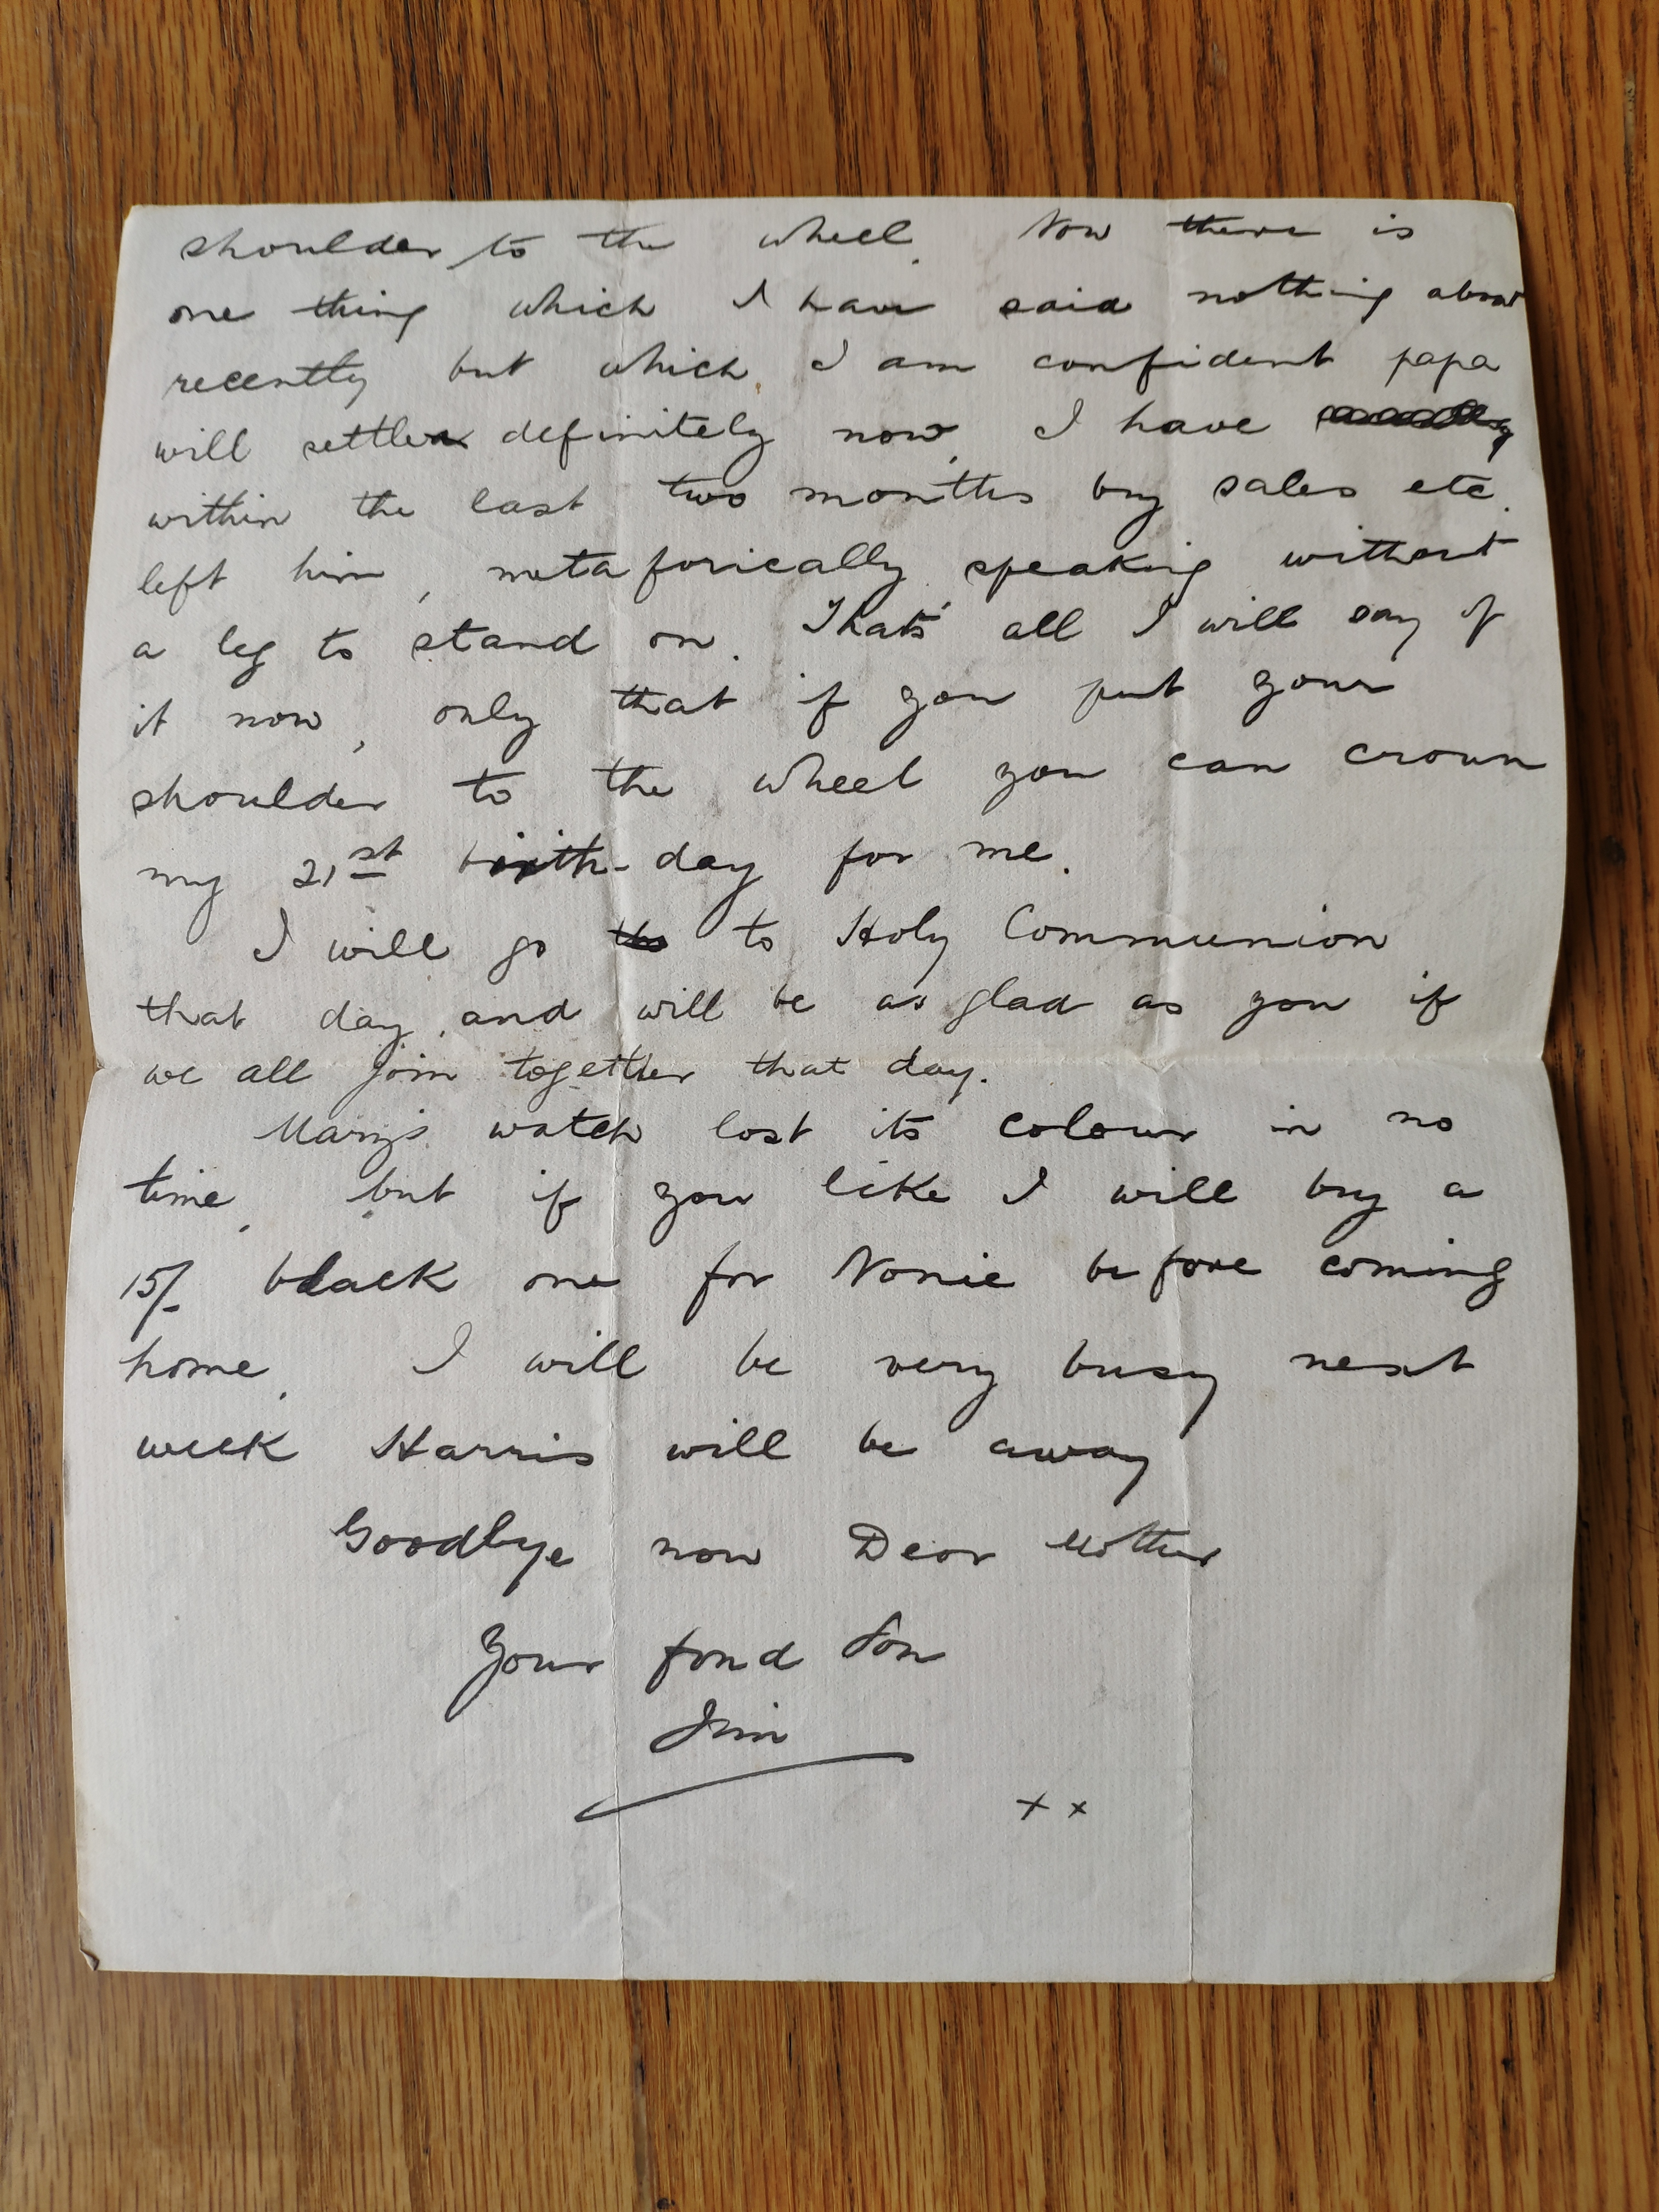 shoulder to the wheel. Now there is
one thing which I have said nothing about
recently but which I am confident papa
will settle definitely now. I have
within the last two months by sales etc.
left him, metaforically speaking without
a leg to stand on. That's all I will say of
it now, only that if you put your
shoulder to the wheel you can crown
my 21st birth-day for me.
I will go to Holy Communion
that day, and will be as glad as you if
we all join together that day.
Mary's watch lost its colour in no
time, but if you like I will buy a
15/- black one for Nonie before coming
home. I will be very busy next
week Harris will be away
Goodbye now Dear Mother
Your fond Son
Jim
x x